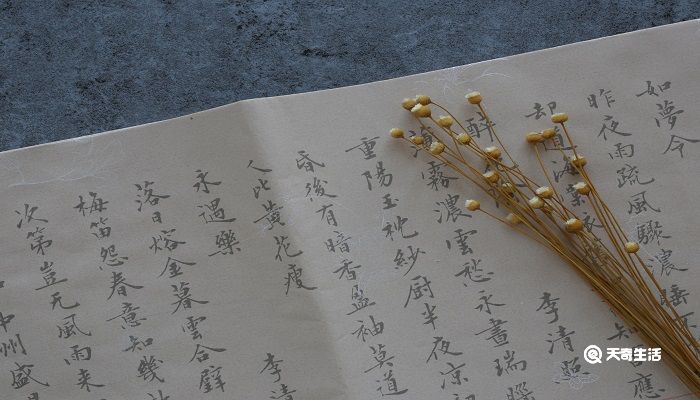 如夢令
昨夜雨疏風驟濃睡不
却道海棠依知否應
醉 李清照
薄霧濃雲愁永晝瑞腦
重陽玉枕紗厨半夜凉初
昏後有暗香盈袖莫道
人比黃花瘦
永遇樂 李清
落日熔金暮雲合璧
梅笛怨春意知幾
次第豈无風雨來
中州盛
天奇生活